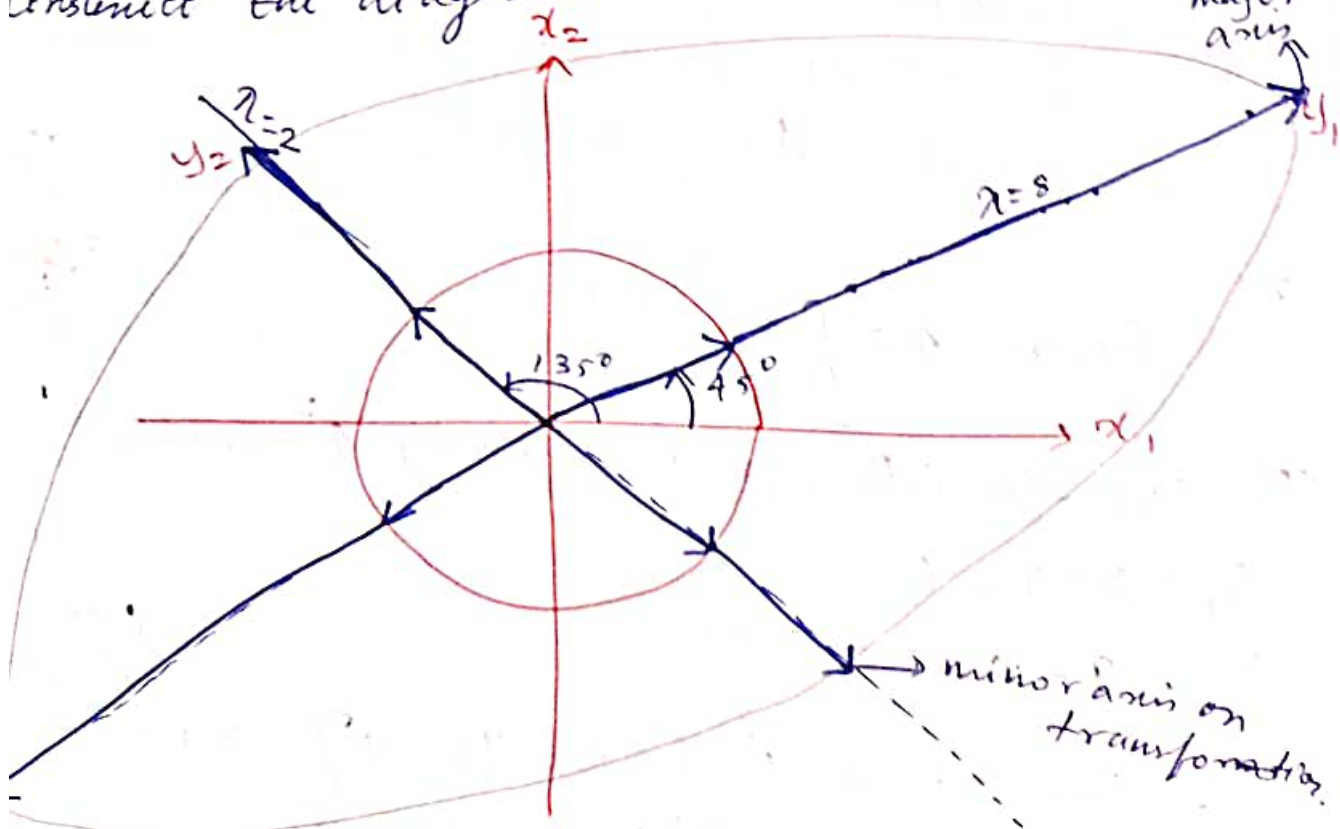 the diag
x₂
major
axis
λ=2
y₂
y₁
λ=8
135°
45°
x₁
minor axis on
transformation.